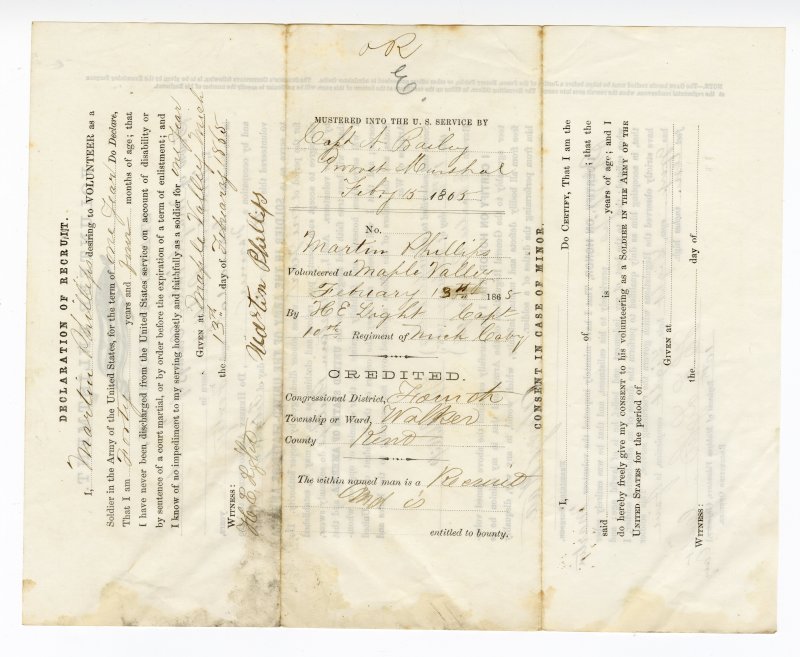 OK
MUSTERED INTO THE U. S. SERVICE BY
Capt N. Bailey
Provost Marshal
Feby 15 1865
No.
Martin Phillips
Volunteered at Maple Valley
Febuary 13th 1865
By H E Light Capt
10th Regiment of Mich Cavy
CREDITED.
Congressional District, Fourth
Township or Ward, Walker
County Kent
The within named man is a Recruit
and is
entitled to bounty.
DECLARATION OF RECRUIT.
I, Martin Phillips desiring to VOLUNTEER as a
Soldier in the Army of the United States, for the term of One Year Do Declare,
That I am years and months of age; that
I have never been discharged from the United States service on account of disability or
by sentence of a court martial, or by order before the expiration of a term of enlistment; and
I know of no impediment to my serving honestly and faithfully as a soldier for one year
GIVEN AT Maple Valley Mich
the 13th day of Febuary 1865
Martin Phillips
WITNESS:
H E Light
CONSENT IN CASE OF MINOR.
I, DO CERTIFY, That I am the
of ; that the
said is years of age; and I
do hereby freely give my CONSENT to his volunteering as a SOLDIER IN THE ARMY OF THE
UNITED STATES for the period of
GIVEN AT
the day of
WITNESS: